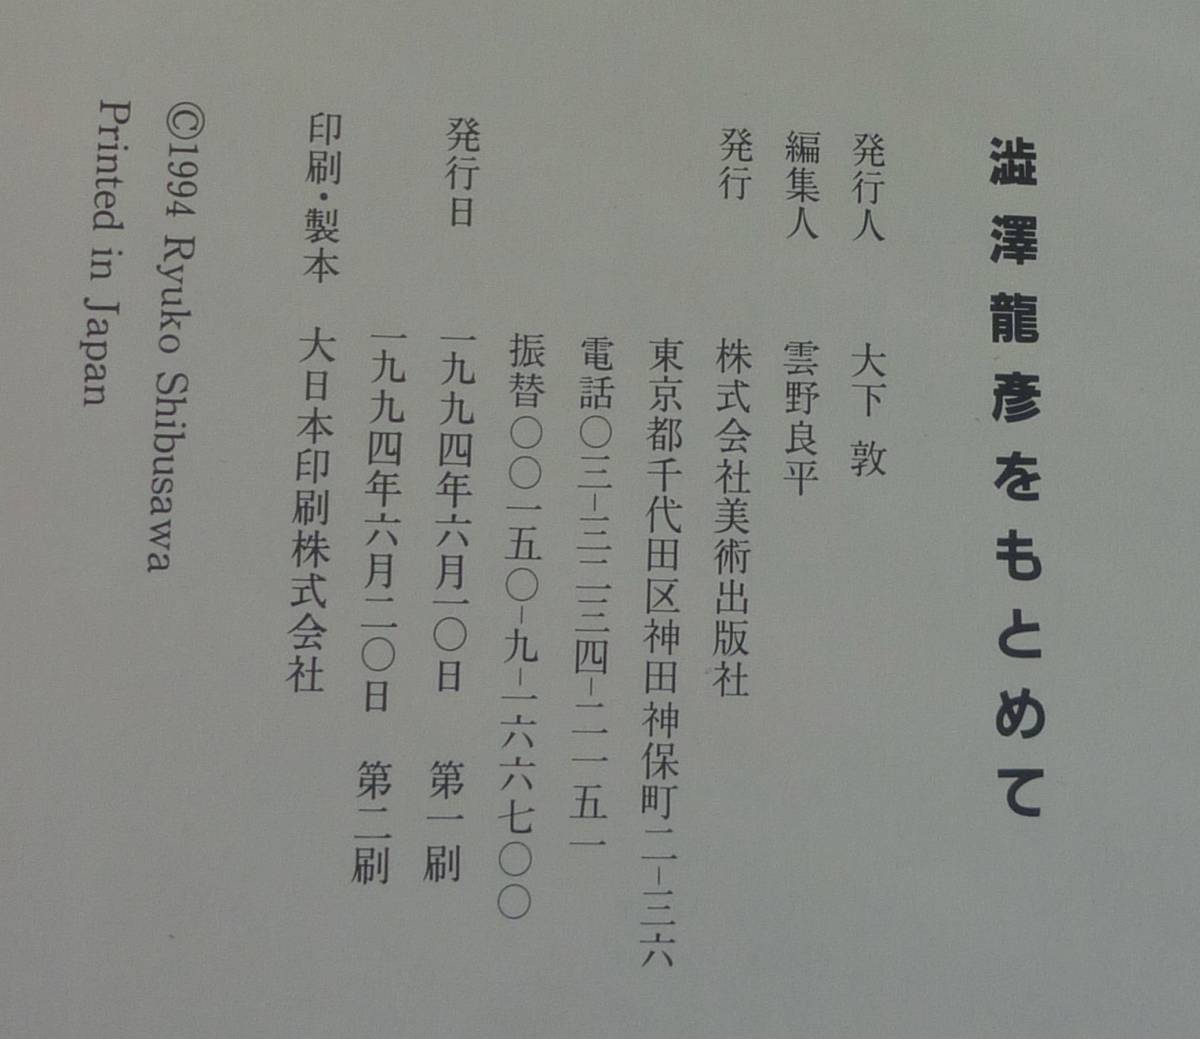 澁澤龍彦をもとめて
発行人 大下 敦
編集人 雲野良平
発行 株式会社美術出版社
東京都千代田区神田神保町二−三六
電話〇三−三二三四−二一五一
振替〇〇一五〇−九−一六六七〇〇
発行日 一九九四年六月一〇日 第一刷
一九九四年六月二〇日 第二刷
印刷・製本 大日本印刷株式会社
©1994 Ryuko Shibusawa
Printed in Japan